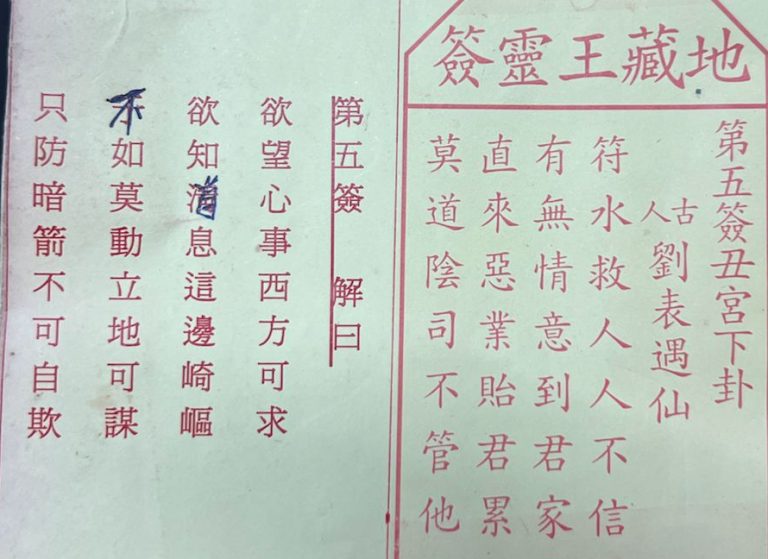 地藏王靈簽
第五簽丑宮下卦
古人劉表遇仙
符水救人人不信
有無情意到君家
直來惡業貽君累
莫道陰司不管他
第五簽 解曰
欲望心事西方可求
欲知消息這邊崎嶇
不如莫動立地可謀
只防暗箭不可自欺